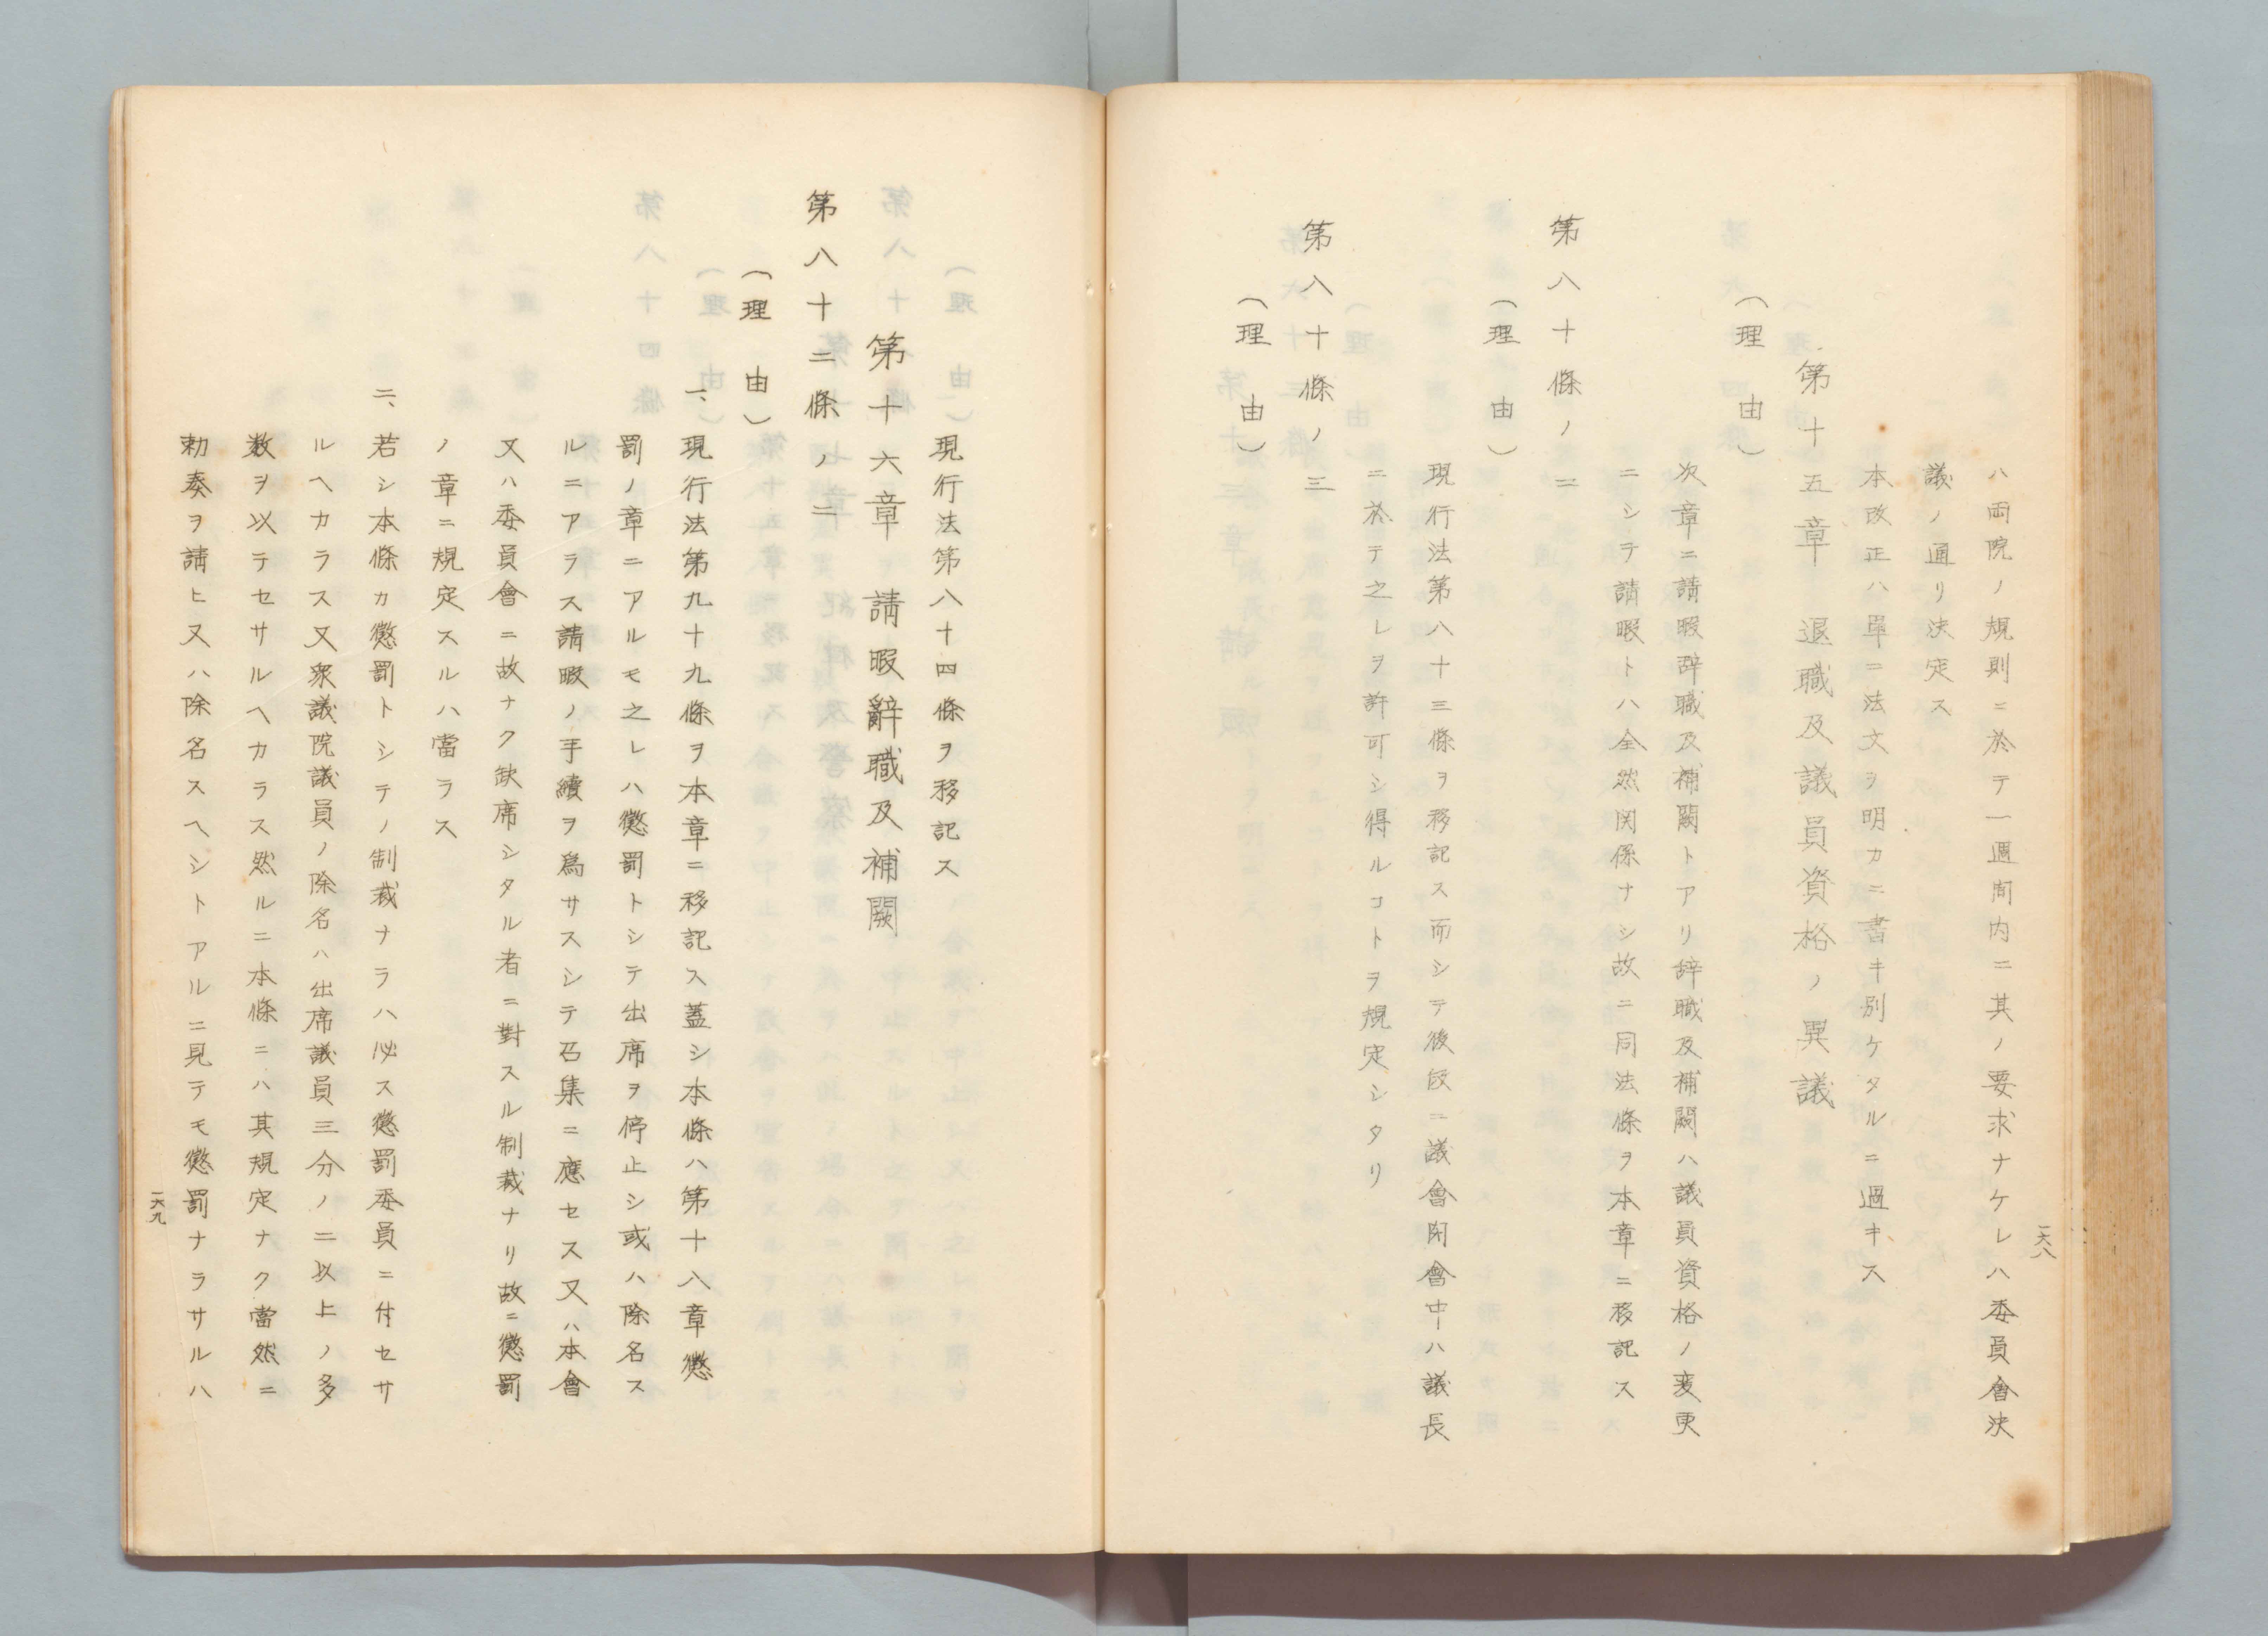 ハ両院ノ規則ニ於テ一週間内ニ其ノ要求ナケレハ委員會決
議ノ通リ決定ス
本改正ハ單ニ法文ヲ明カニ書キ別ケタルニ過キス
第十五章 退職及議員資格ノ異議
（理由）
次章ニ請暇辞職及補闕トアリ辞職及補闕ハ議員資格ノ変更
ニシテ請暇トハ全然関係ナシ故ニ同法條ヲ本章ニ移記ス
第八十條ノ二
（理由）
現行法第八十三條ヲ移記ス而シテ後段ニ議會開會中ハ議長
ニ於テ之レヲ許可シ得ルコトヲ規定シタリ
第八十條ノ三
（理由）
一六八
現行法第八十四條ヲ移記ス
第十六章 請暇辭職及補闕
第八十二條ノ二
（理由）
一、現行法第九十九條ヲ本章ニ移記ス蓋シ本條ハ第十八章懲
罰ノ章ニアルモ之レハ懲罰トシテ出席ヲ停止シ或ハ除名ス
ルニアラス請暇ノ手續ヲ爲サスシテ召集ニ應セス又ハ本會
又ハ委員會ニ故ナク缺席シタル者ニ對スル制裁ナリ故ニ懲罰
ノ章ニ規定スルハ當ラス
二、若シ本條カ懲罰トシテノ制裁ナラハ必ス懲罰委員ニ付セサ
ルヘカラス又衆議院議員ノ除名ハ出席議員三分ノ二以上ノ多
数ヲ以テセサルヘカラス然ルニ本條ニハ其規定ナク當然ニ
勅奏ヲ請ヒ又ハ除名スヘシトアルニ見テモ懲罰ナラサルハ
一六九